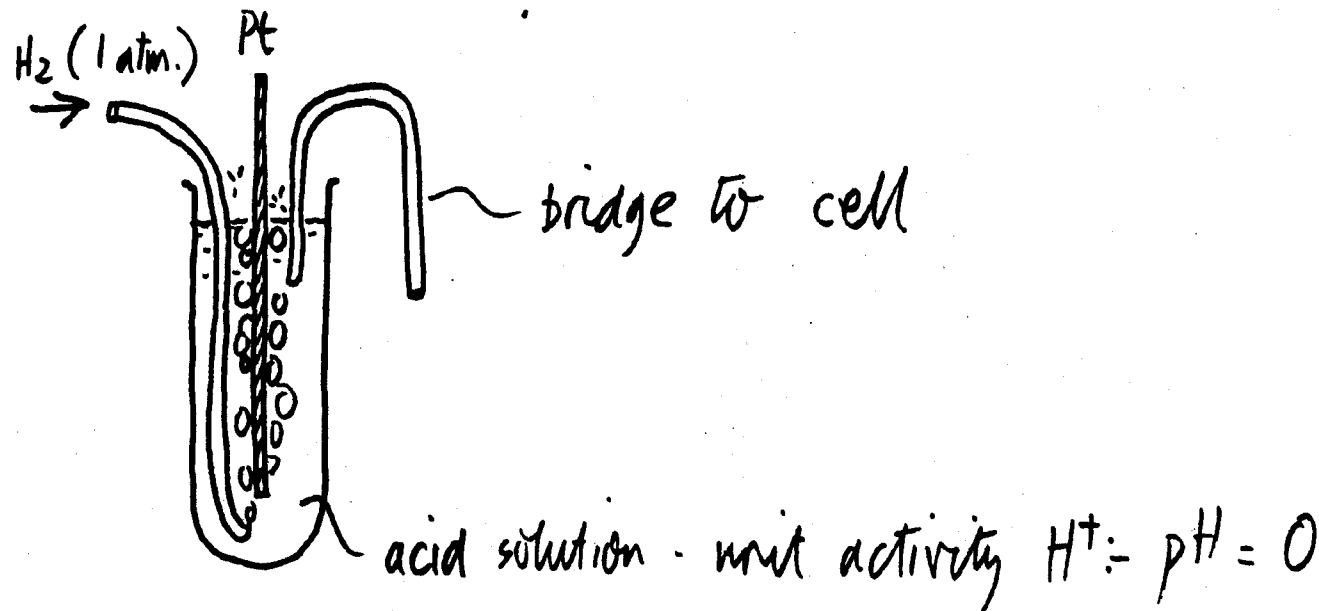 H₂ (1 atm.)
Pt
bridge to cell
acid solution - unit activity H⁺:- pH = 0